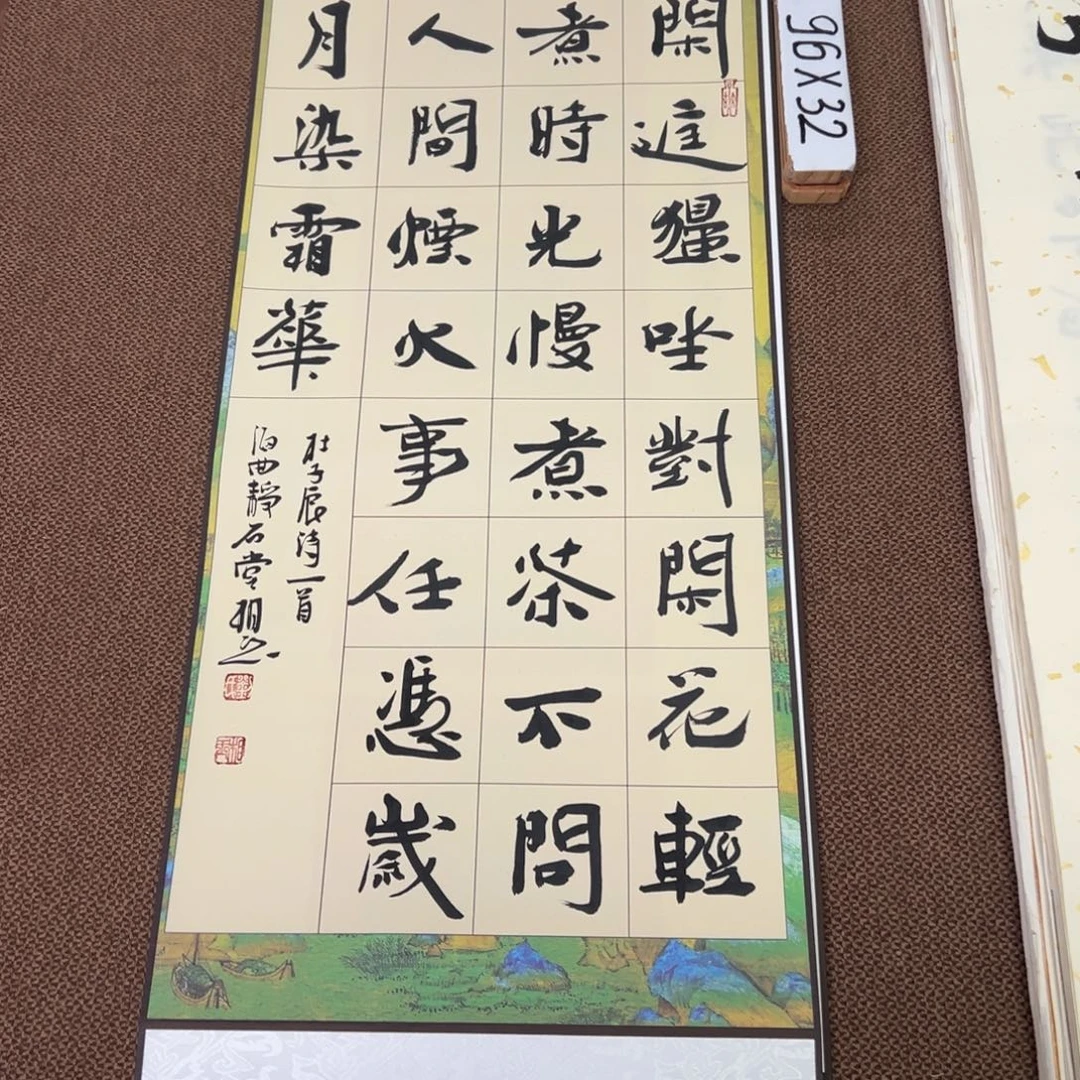 閑庭獨坐對閑花輕
煮時光慢煮茶不問
人間煙火事任憑歲
月染霜華
杜子辰詩一首
海曲靜石堂
96X32